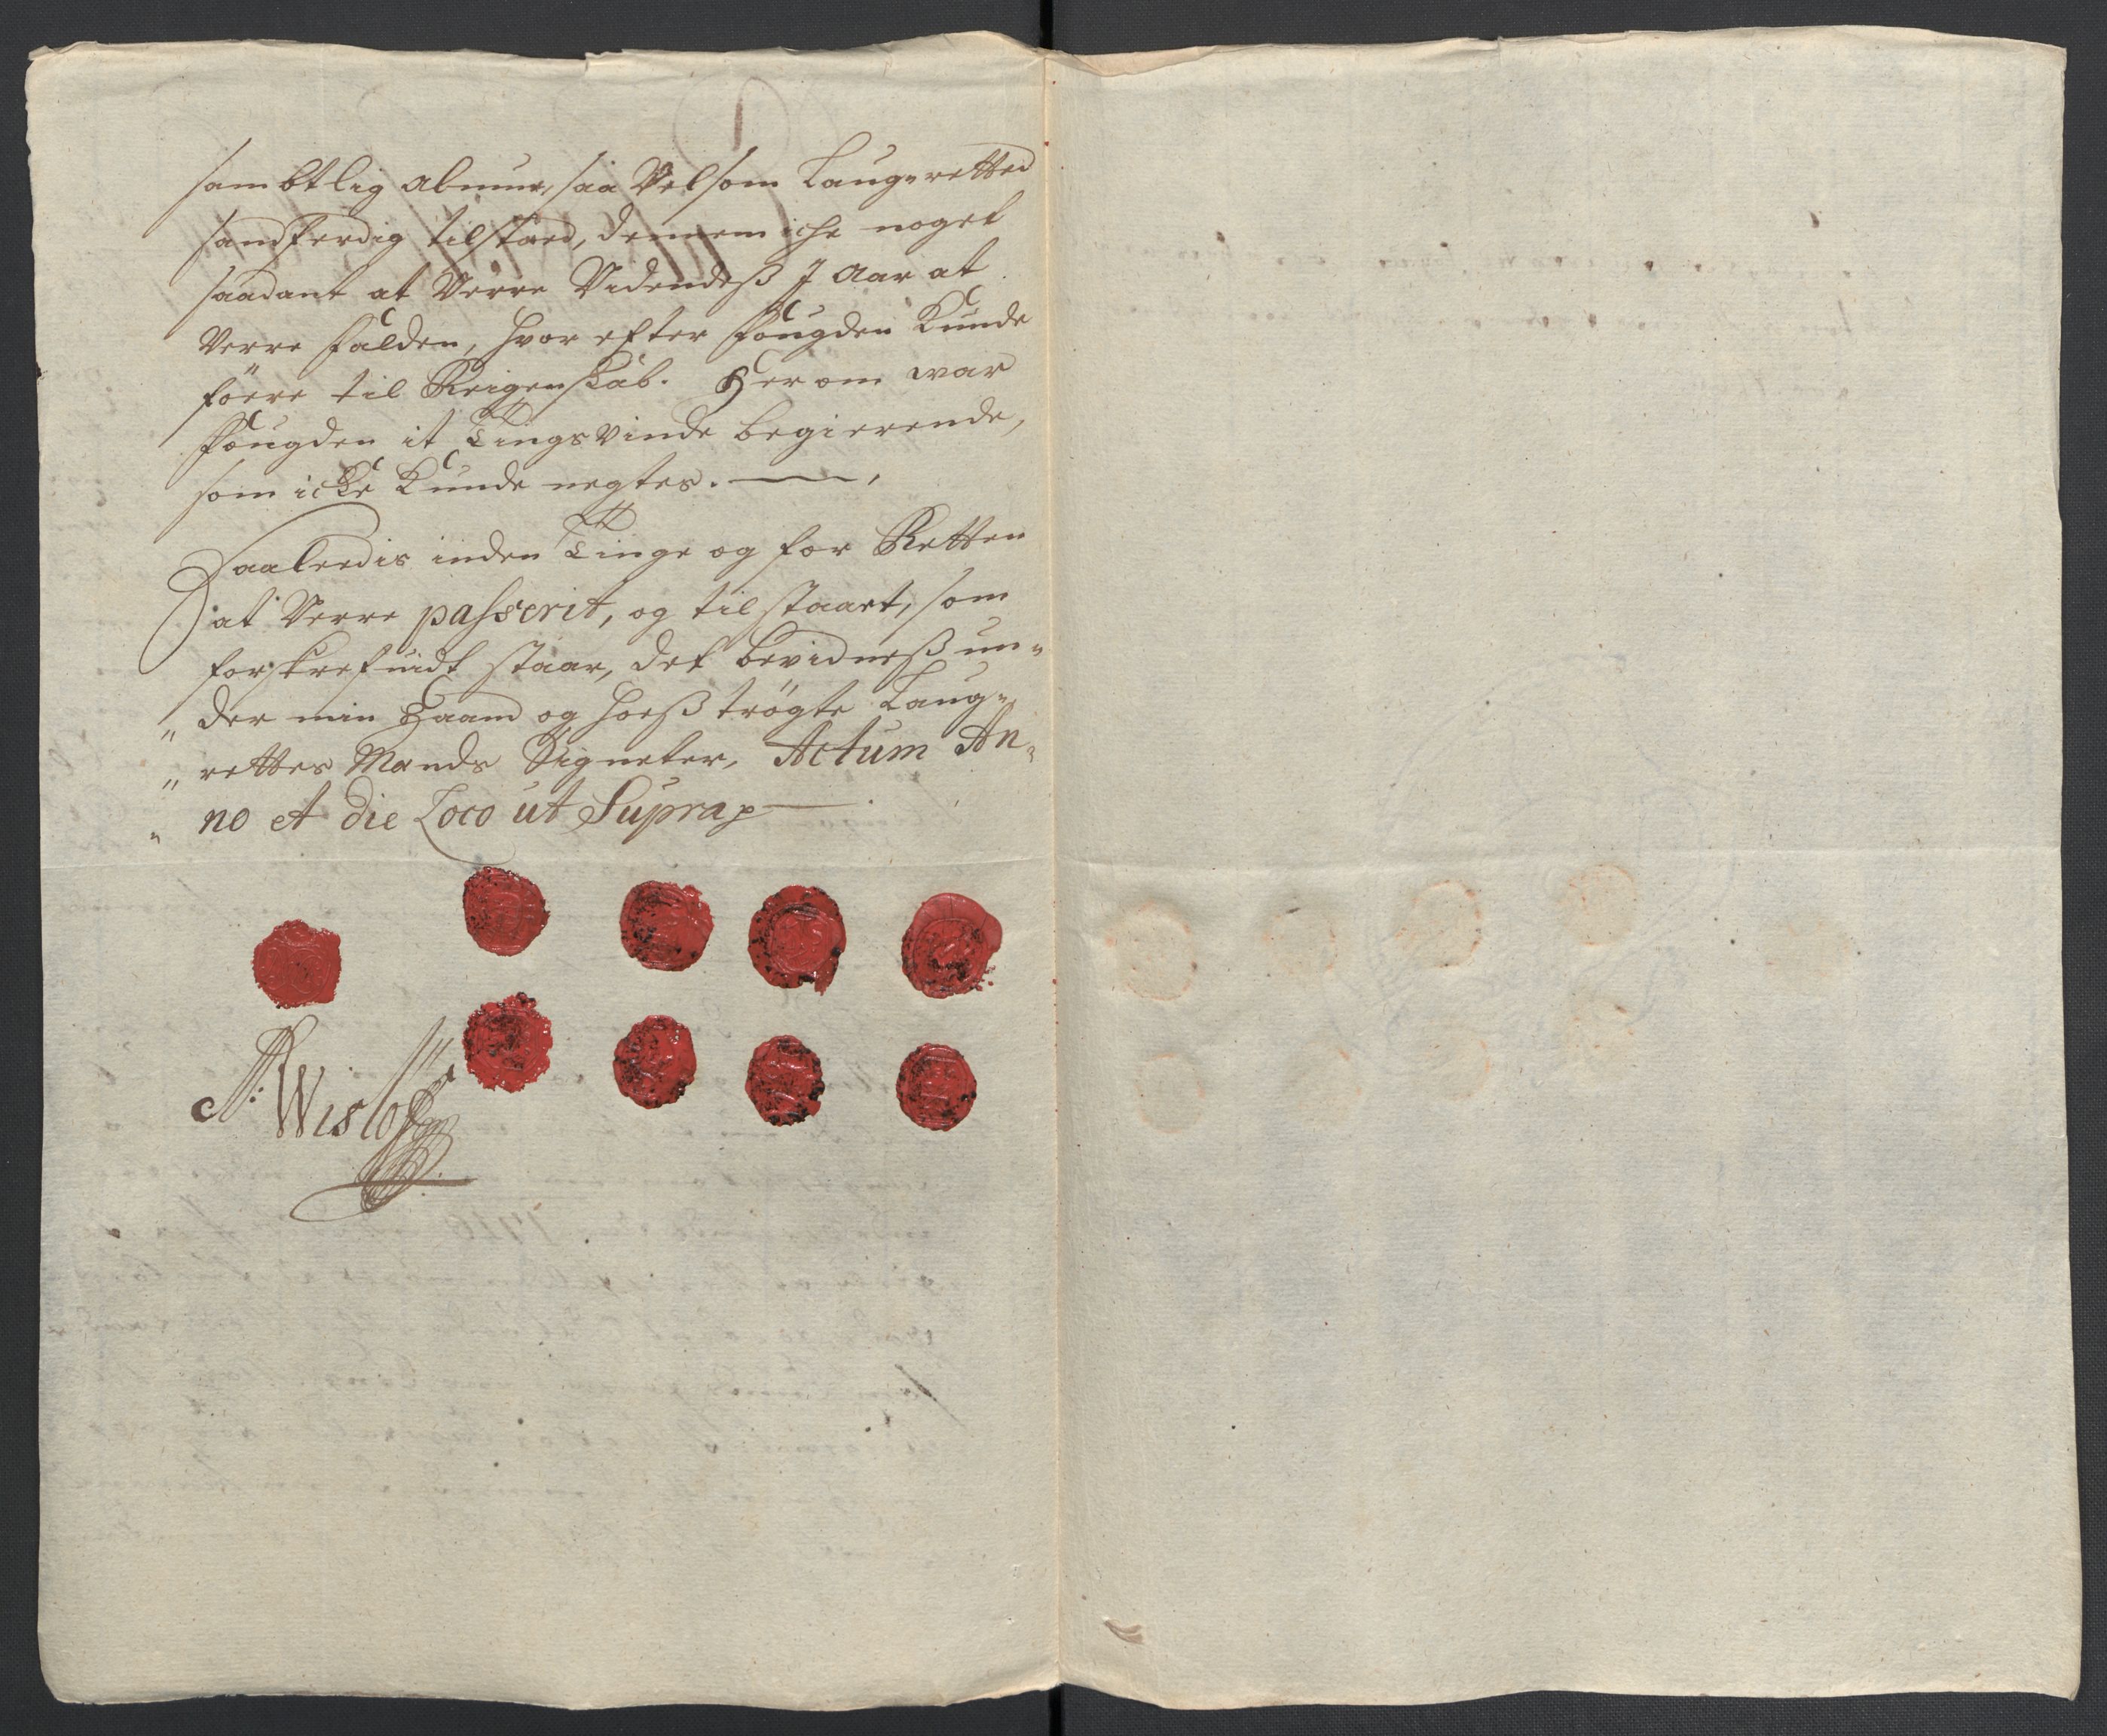 sambtlig Almue, saa Velsom Laug=retted
sandferdig tilstoed, dennem iche noget
saadant at Verre Videndeß J Aar at
Verre falden, hvor efter fougden Kunde
föere til Reigenskab. Herom war
fougden it Tingsvinde begierende,
som icke Kunde negtes.
Saaleedis inden Tinge og for Retten
at Verre passerit, og tilstaaet, som
forskrefuidt staar, det bevidneß un=
der min Haand og hoeß trögte Laug=
rettes Mands Signeter, Actum An=
no et die Loco ut Supra
A: Wisløff